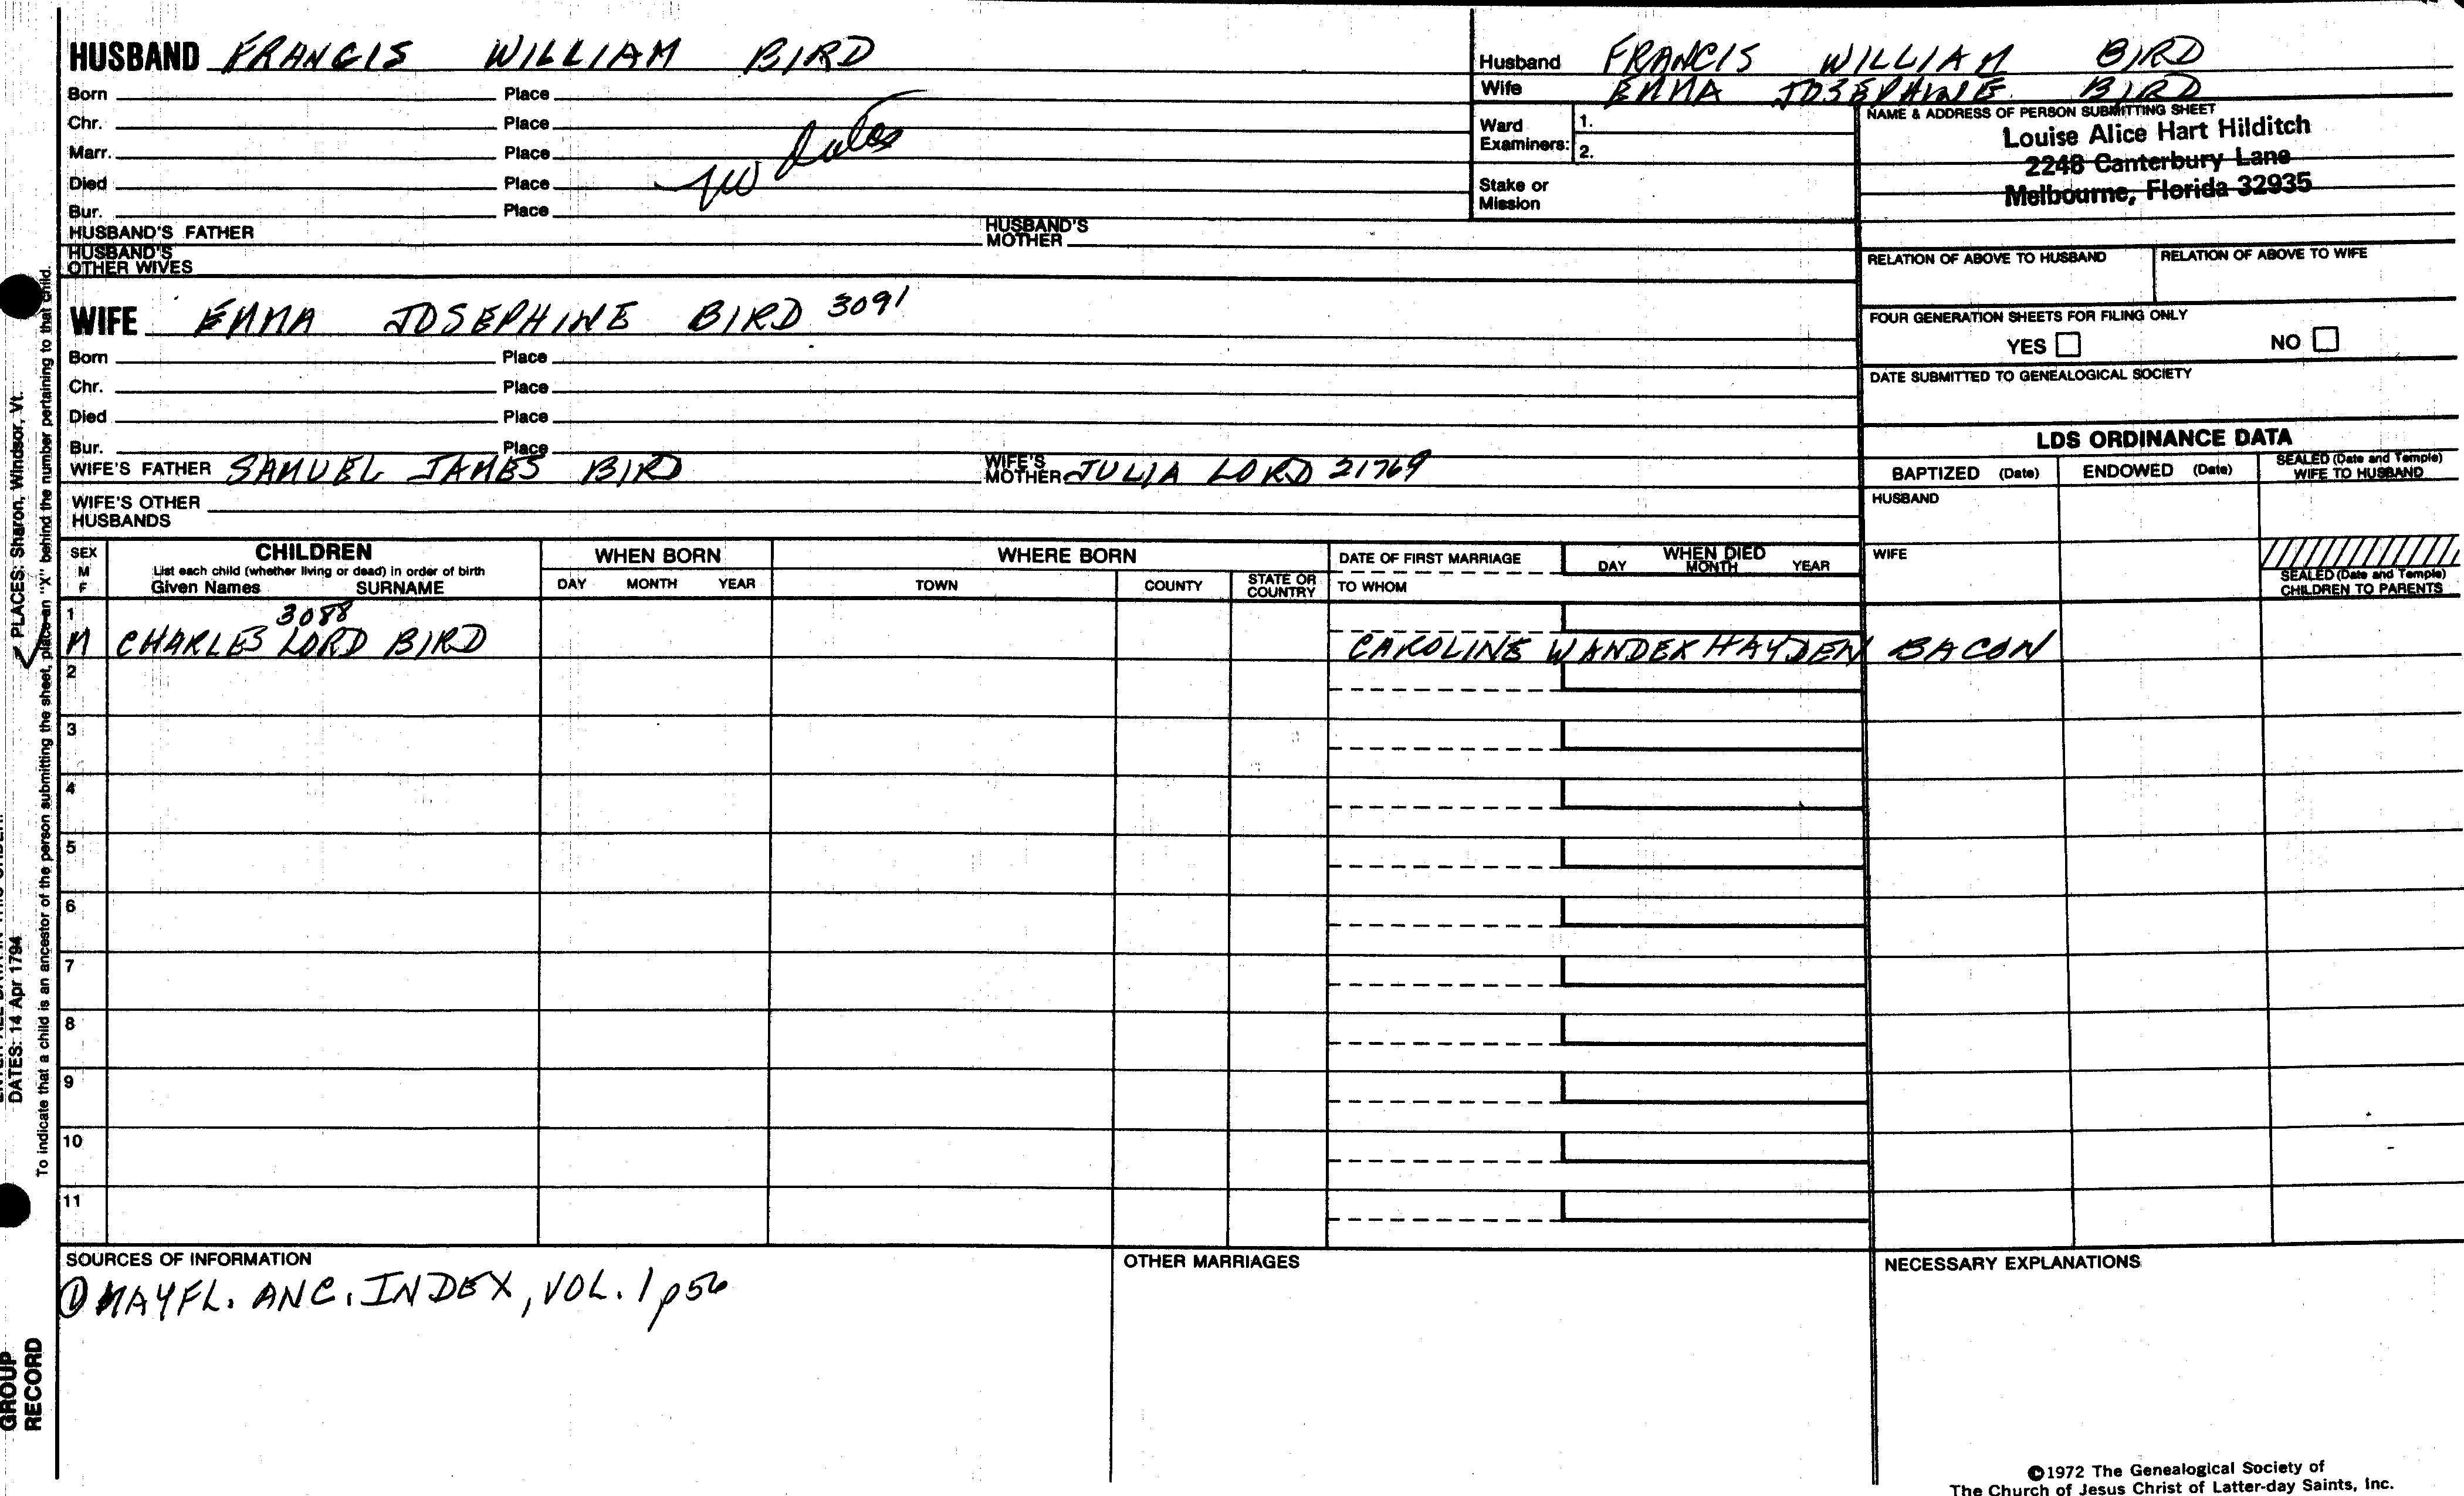 HUSBAND FRANCIS WILLIAM BIRD
Born Place
Chr. Place
Marr. Place
Died Place
Bur. Place
no dates
HUSBAND'S FATHER HUSBAND'S MOTHER
HUSBAND'S OTHER WIVES
WIFE EMMA JOSEPHINE BIRD 3091
Born Place
Chr. Place
Died Place
Bur. Place
WIFE'S FATHER SAMUEL JAMES BIRD WIFE'S MOTHER JULIA LORD 21769
WIFE'S OTHER HUSBANDS
Husband FRANCIS WILLIAM BIRD
Wife EMMA JOSEPHINE BIRD
Ward Examiners: 1.
2.
Stake or Mission
NAME & ADDRESS OF PERSON SUBMITTING SHEET
Louise Alice Hart Hilditch
2248 Canterbury Lane
Melbourne, Florida 32935
RELATION OF ABOVE TO HUSBAND RELATION OF ABOVE TO WIFE
FOUR GENERATION SHEETS FOR FILING ONLY
YES NO
DATE SUBMITTED TO GENEALOGICAL SOCIETY
LDS ORDINANCE DATA
BAPTIZED (Date) ENDOWED (Date) SEALED (Date and Temple) WIFE TO HUSBAND
HUSBAND
WIFE
SEALED (Date and Temple) CHILDREN TO PARENTS
SEX M F
CHILDREN
List each child (whether living or dead) in order of birth
Given Names SURNAME
WHEN BORN
DAY MONTH YEAR
WHERE BORN
TOWN COUNTY STATE OR COUNTRY
DATE OF FIRST MARRIAGE
TO WHOM
WHEN DIED
DAY MONTH YEAR
1 3088
M CHARLES LORD BIRD CAROLINE WANDEX HAYDEN BACON
2
3
4
5
6
7
8
9
10
11
SOURCES OF INFORMATION
① MAYFL. ANC. INDEX, VOL. 1 p56
OTHER MARRIAGES
NECESSARY EXPLANATIONS
©1972 The Genealogical Society of
The Church of Jesus Christ of Latter-day Saints, Inc.
PLACES: Sharon, Windsor, Vt.
DATES: 14 Apr 1794
To indicate that a child is an ancestor of the person submitting the sheet, place an "X" behind the number pertaining to that child.
GROUP
RECORD